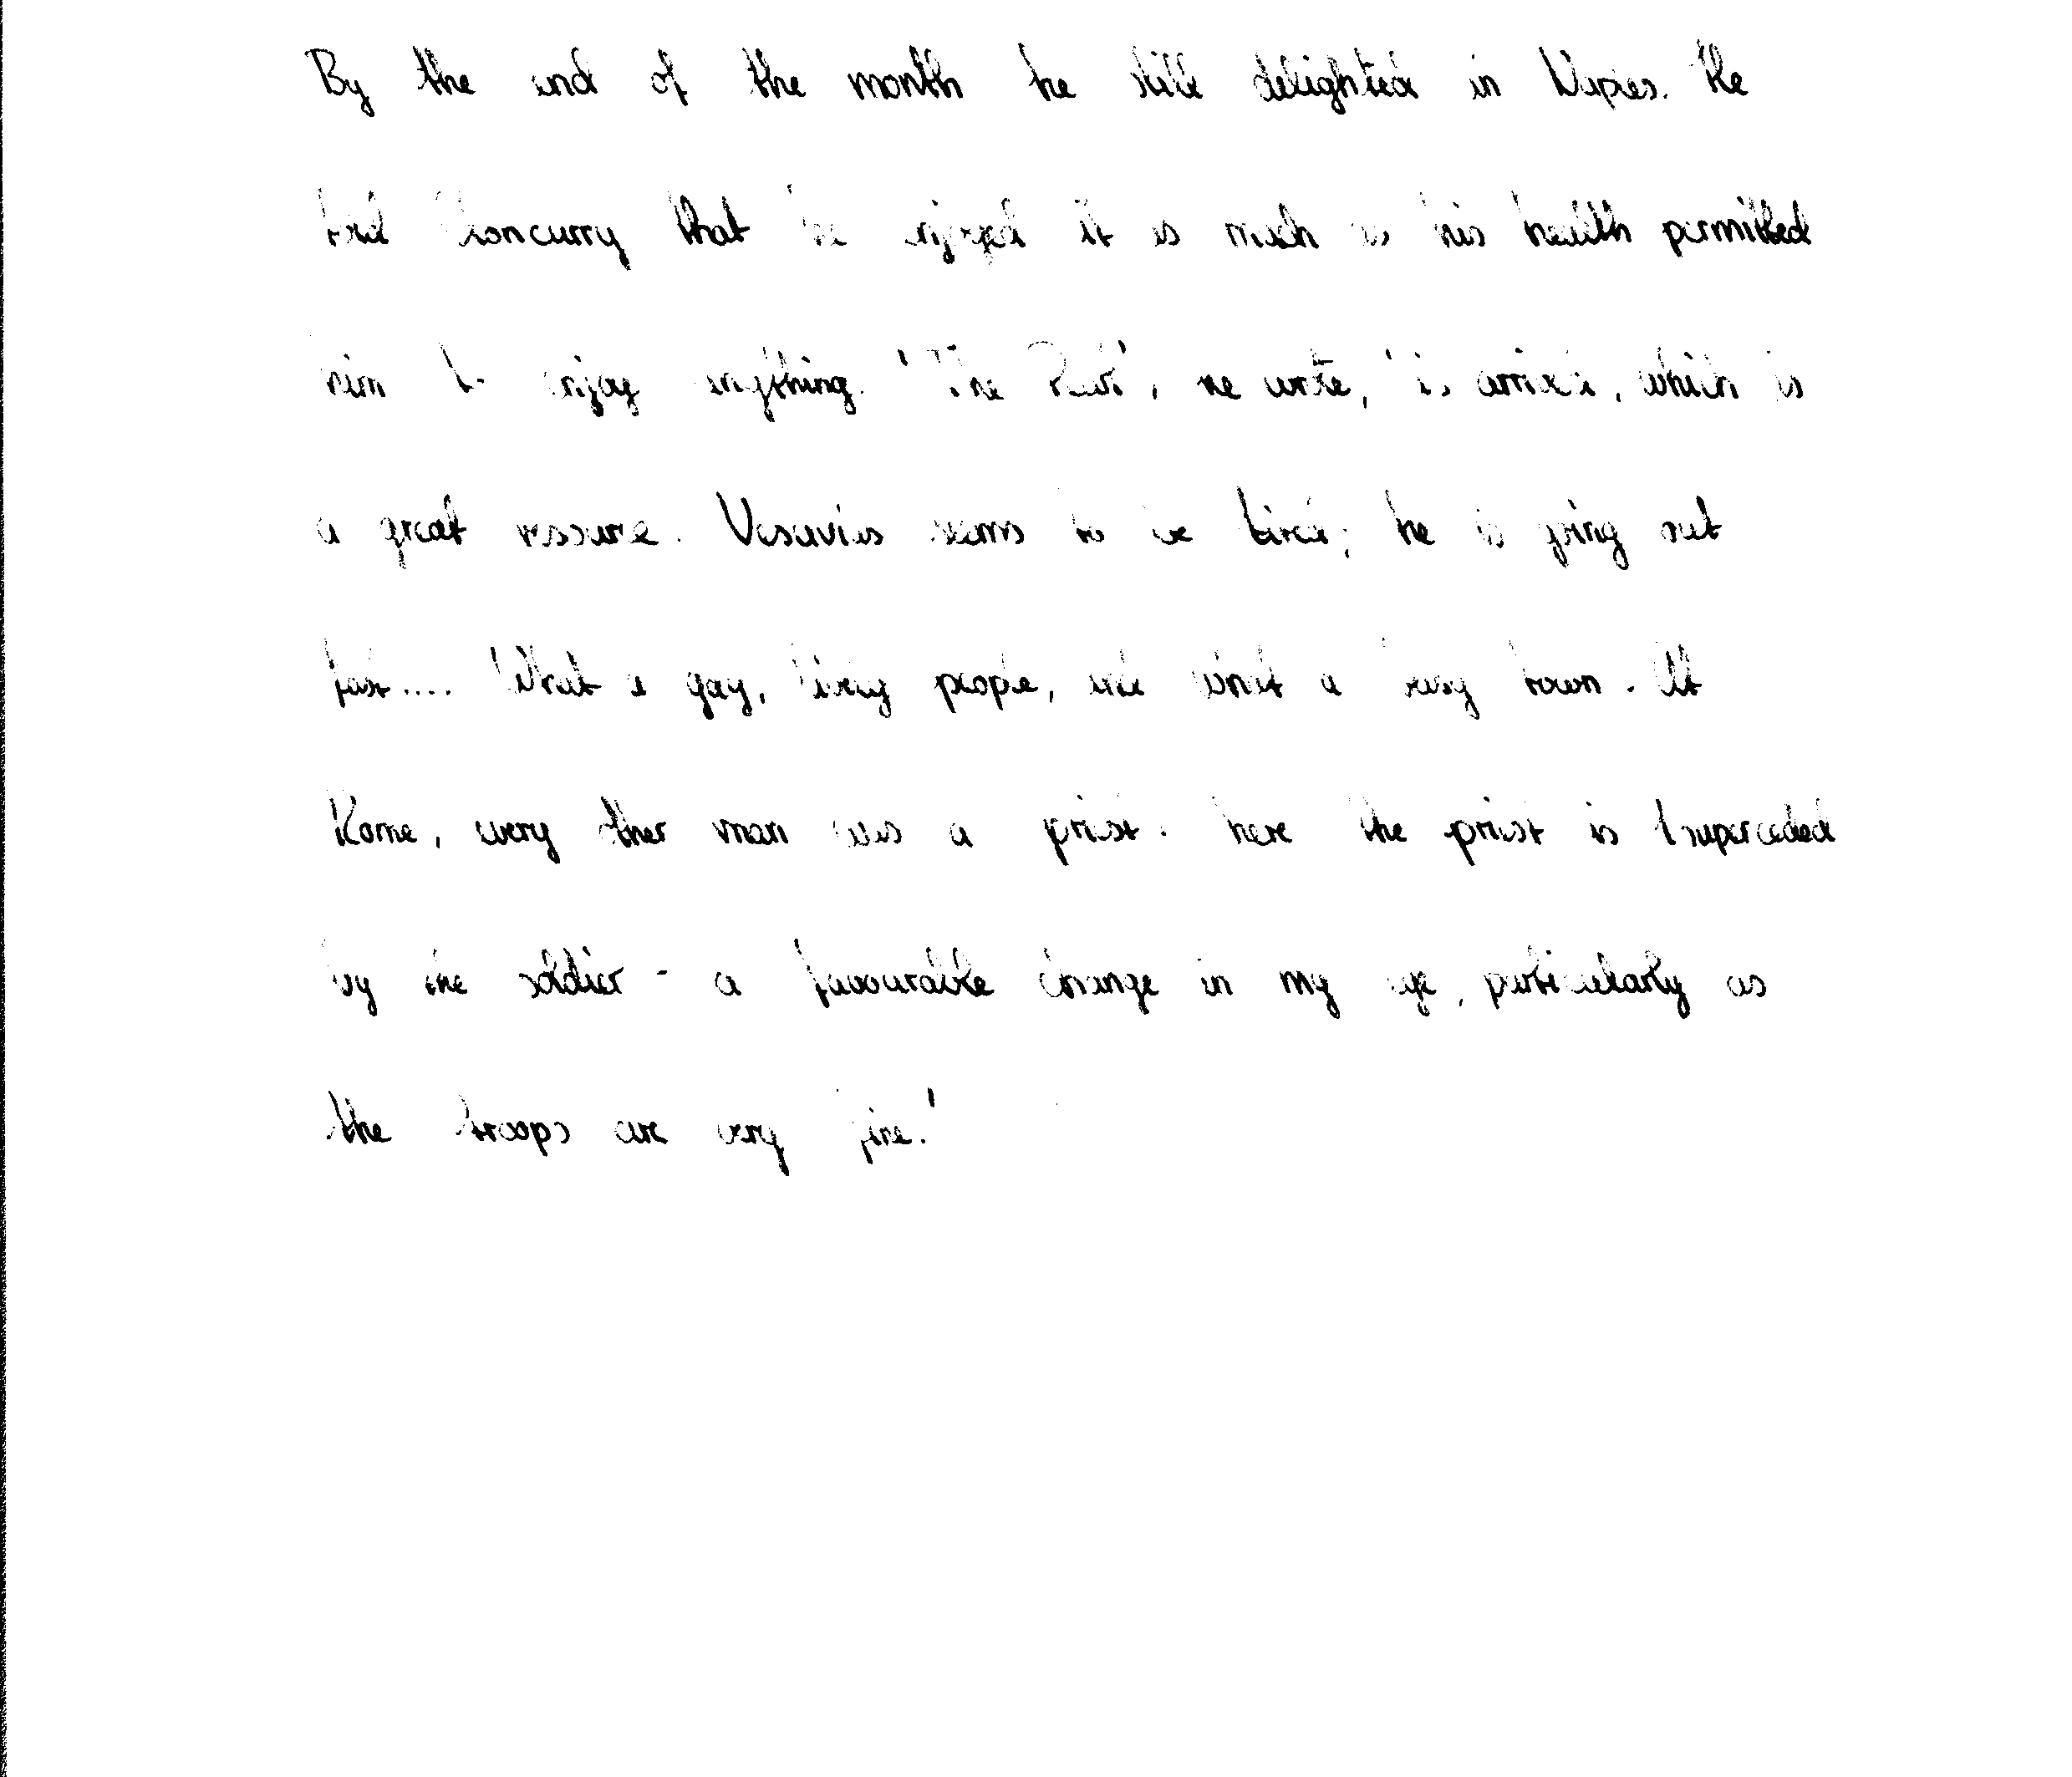 By the end of the month he still delighted in Naples. He
told Cloncurry that he enjoyed it as much as his health permitted
him to enjoy anything. 'The Pearl', he wrote, 'is arrived, which is
a great ressource. Vesuvius seems to be tired; he is going out
fast.... What a gay, lively people, and what a busy town. At
Rome, every other man was a priest. here the priest is superceded
by the soldier - a favourable change in my eye, particularly as
the troops are very fine.'